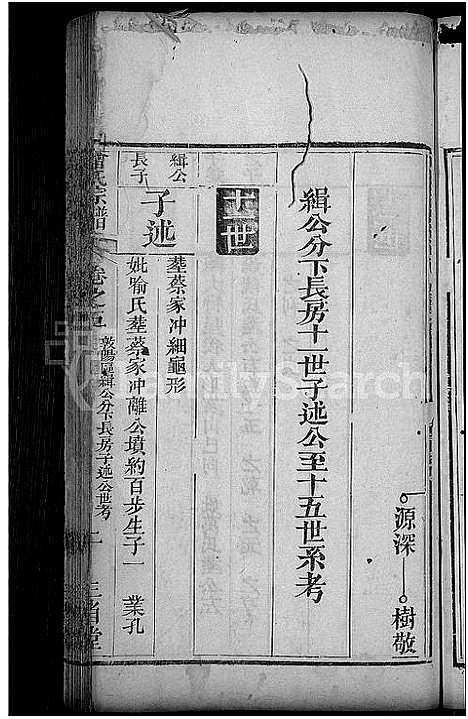 源深 樹敬
緝公分下長房十一世子述公至十五世系考
十一世
緝公長子
子述
塟蔡家冲細龜形
妣喻氏塟蔡家冲離公墳約百步生子一 業孔
氏宗譜 卷之五 緝公分下長房子述公世考 二 三省堂
FamilySearch